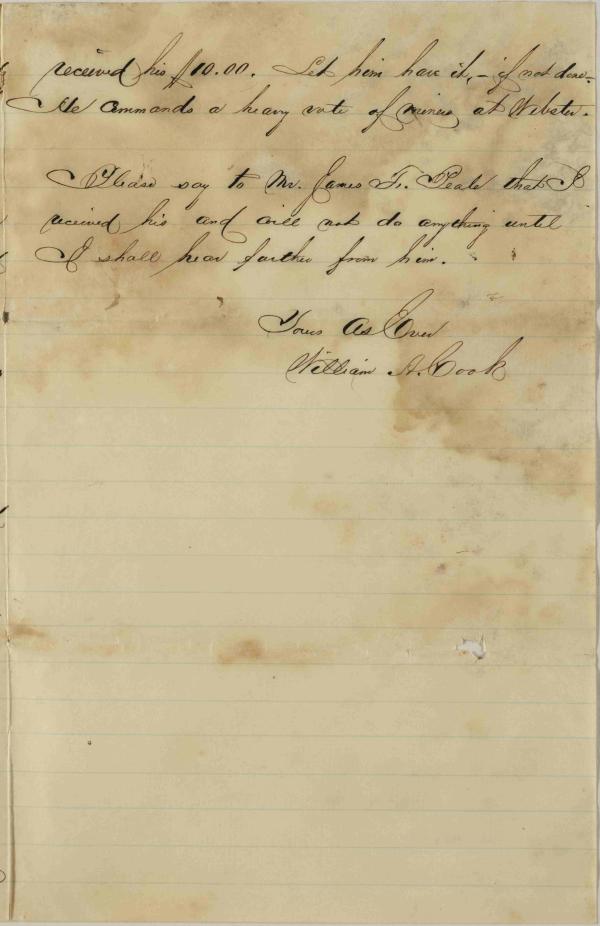 received his $10.00. Let him have it, – if not done –
He commands a heavy vote of miners, at Webster.
Please say to Mr. James F. Peale that I
received his and will not do anything until
I shall hear further from him.
Yours As Ever
William A. Cook